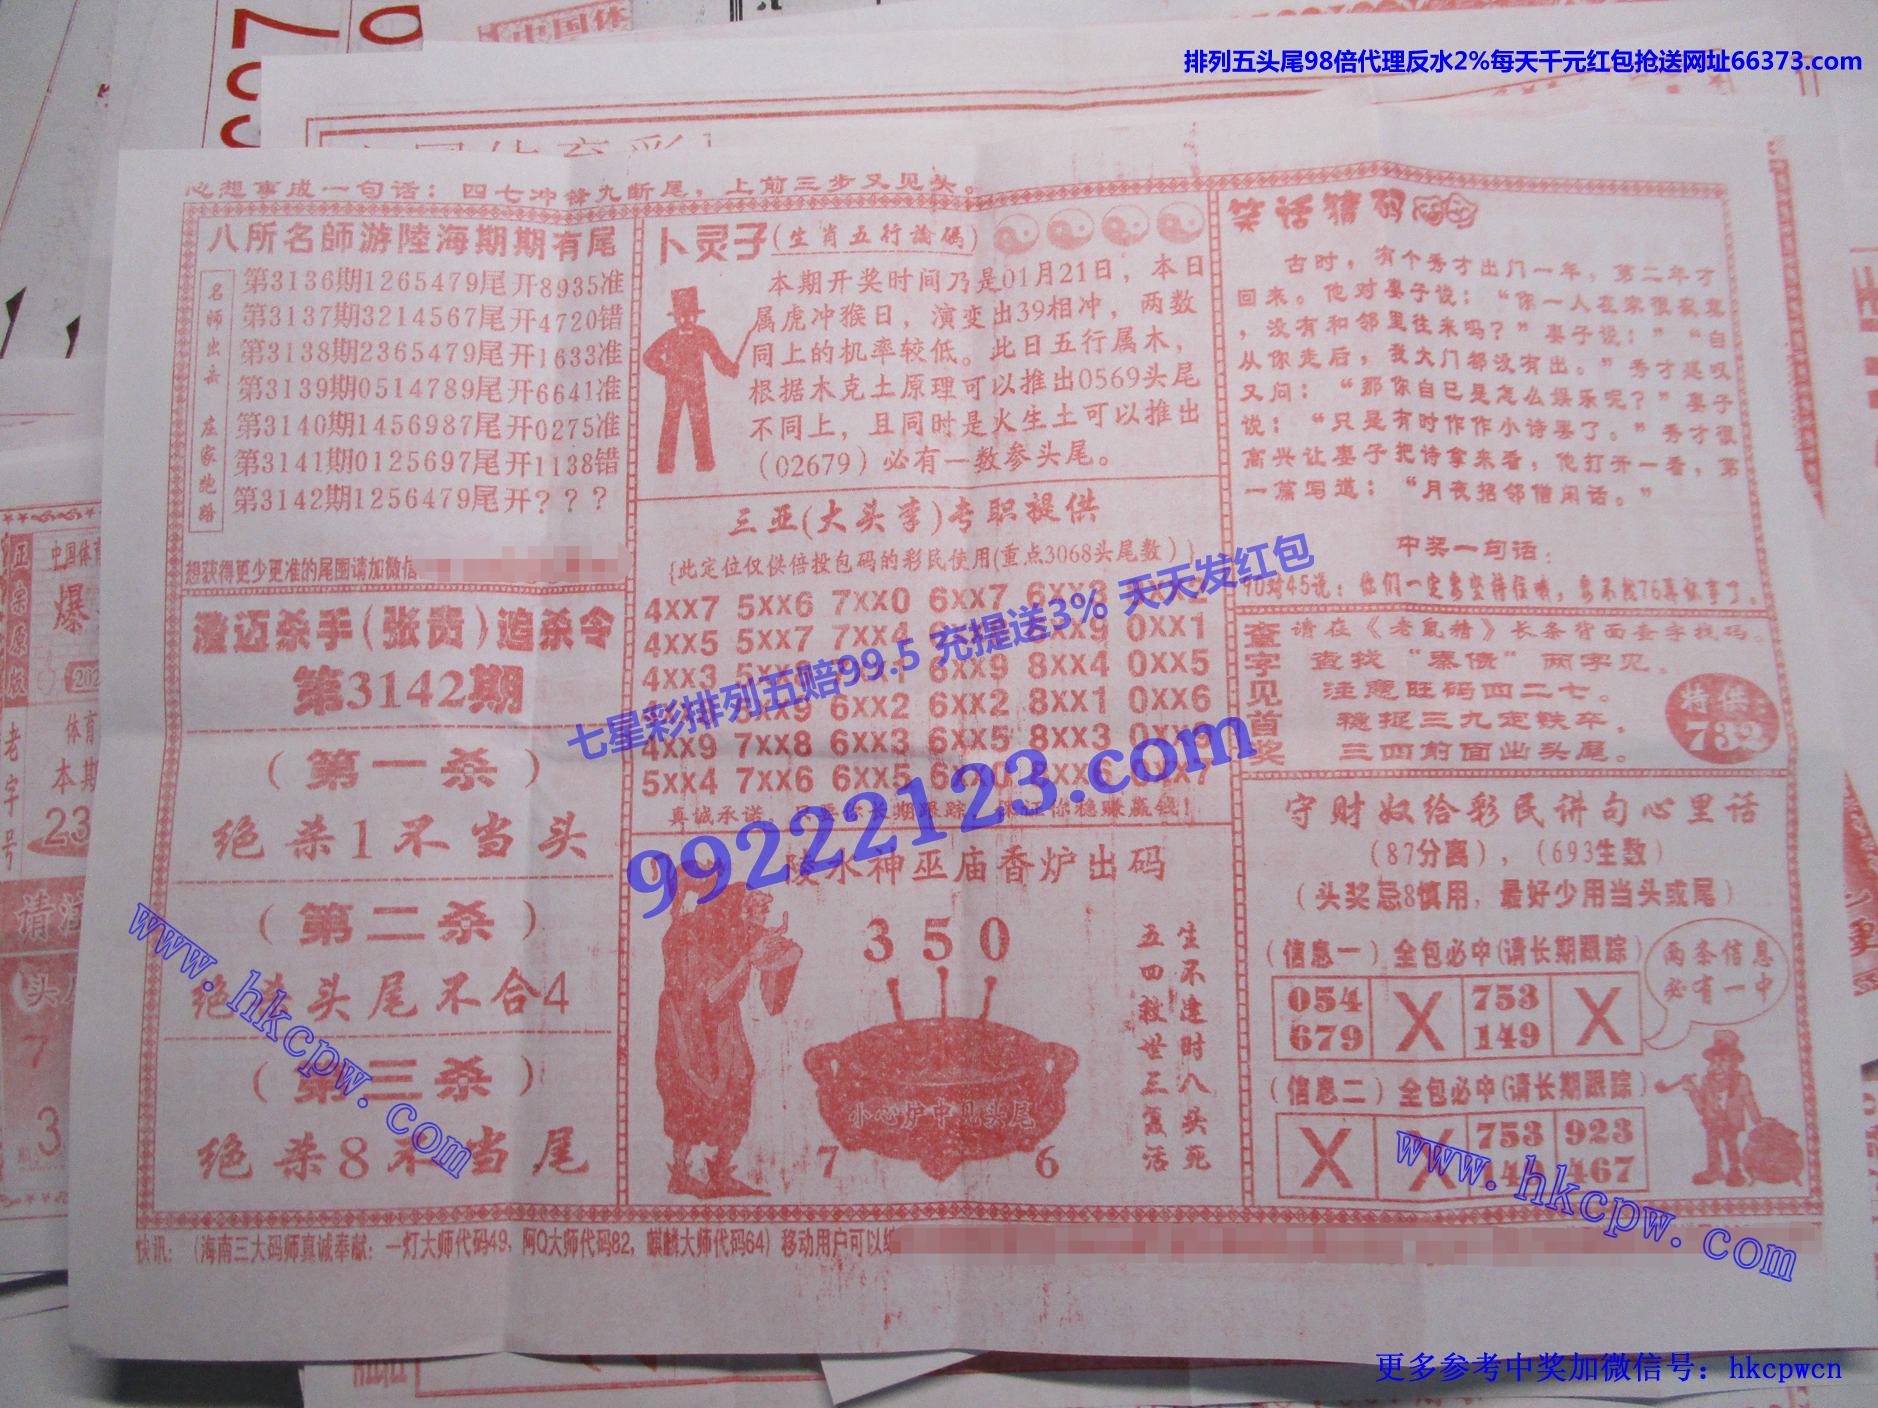 排列五头尾98倍代理反水2%每天千元红包抢送网址66373.com
心想事成一句话：四七冲锋九断尾，上前三步又见头。
八所名師游陸海期期有尾
名师出击 庄家跑路
第3136期1265479尾开8935准
第3137期3214567尾开4720错
第3138期2365479尾开1633准
第3139期0514789尾开6641准
第3140期1456987尾开0275准
第3141期0125697尾开1138错
第3142期1256479尾开？？？
想获得更少更准的尾围请加微信
澄迈杀手(张贵)追杀令
第3142期
（第一杀）
绝杀1不当头
（第二杀）
绝杀头尾不合4
（第三杀）
绝杀8不当尾
卜灵子(生肖五行論碼)
本期开奖时间乃是01月21日，本日
属虎冲猴日，演变出39相冲，两数
同上的机率较低。此日五行属木，
根据木克土原理可以推出0569头尾
不同上，且同时是火生土可以推出
（02679）必有一数参头尾。
三亚(大头李)专职提供
{此定位仅供倍投包码的彩民使用(重点3068头尾数)}
4xx7 5xx6 7xx0 6xx7 6xx3
4xx5 5xx7 7xx4 0xx1
4xx3 8xx4 0xx5
6xx2 6xx2 8xx1 0xx6
4xx9 7xx8 6xx3 6xx5 8xx3
5xx4 7xx6 6xx5
真诚承诺，只要你长期跟踪，保证你稳赚赢钱！
陵水神巫庙香炉出码
3 5 0
小心炉中见头尾
7 6
生不逢时八头死
五四救世三复活
笑话猜码
古时，有个秀才出门一年，第二年才
回来。他对妻子说：“你一人在家很寂寞
，没有和邻里往来吗？”妻子说：”“自
从你走后，我大门都没有出。”秀才是叹
又问：“那你自已是怎么娱乐呢？”妻子
说：“只是有时作作小诗罢了。”秀才很
高兴让妻子把诗拿来看，他打开一看，第
一篇写道：“月夜招邻僧闲话。”
中奖一句话：
90对45说：他们一定要坚持住哦，要不找76再叙事了。
查字见首奖
请在《老鼠精》长条背面查字找码。
查找“秦债”两字见。
注意旺码四二七。
稳捉三九定铁卒，
三四前面出头尾。
特供：
732
守财奴给彩民讲句心里话
（87分离），（693生数）
（头奖忌8慎用，最好少用当头或尾）
（信息一）全包必中(请长期跟踪）
054 X 753 X
679 149
两条信息
必有一中
（信息二）全包必中(请长期跟踪）
X X 753 923
149 467
快讯：（海南三大码师真诚奉献：一灯大师代码49，阿Q大师代码82，麒麟大师代码64）移动用户可以编
七星彩排列五赔99.5 充提送3% 天天发红包
99222123.com
www.hkcpw.com
www.hkcpw.com
更多参考中奖加微信号：hkcpwcn